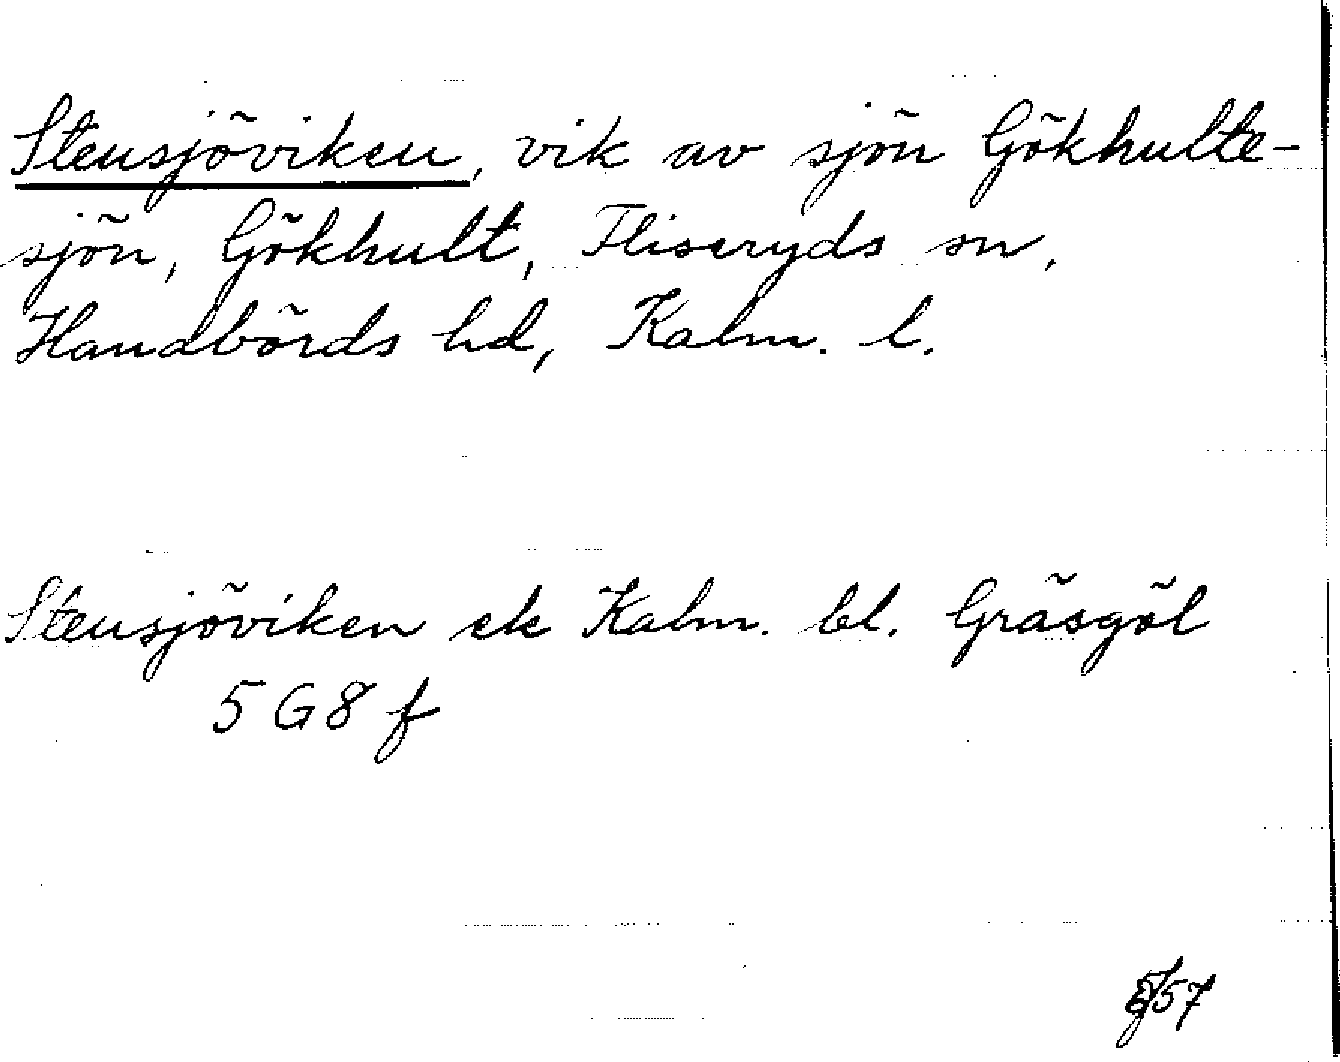 Stensjöviken, vik av sjön Gökhulte-
sjön, Gökhult, Fliseryds sn,
Handbörds hd, Kalm. l.
Stensjöviken ek Kalm. bl. Gräsgöl
5 G 8 f
57